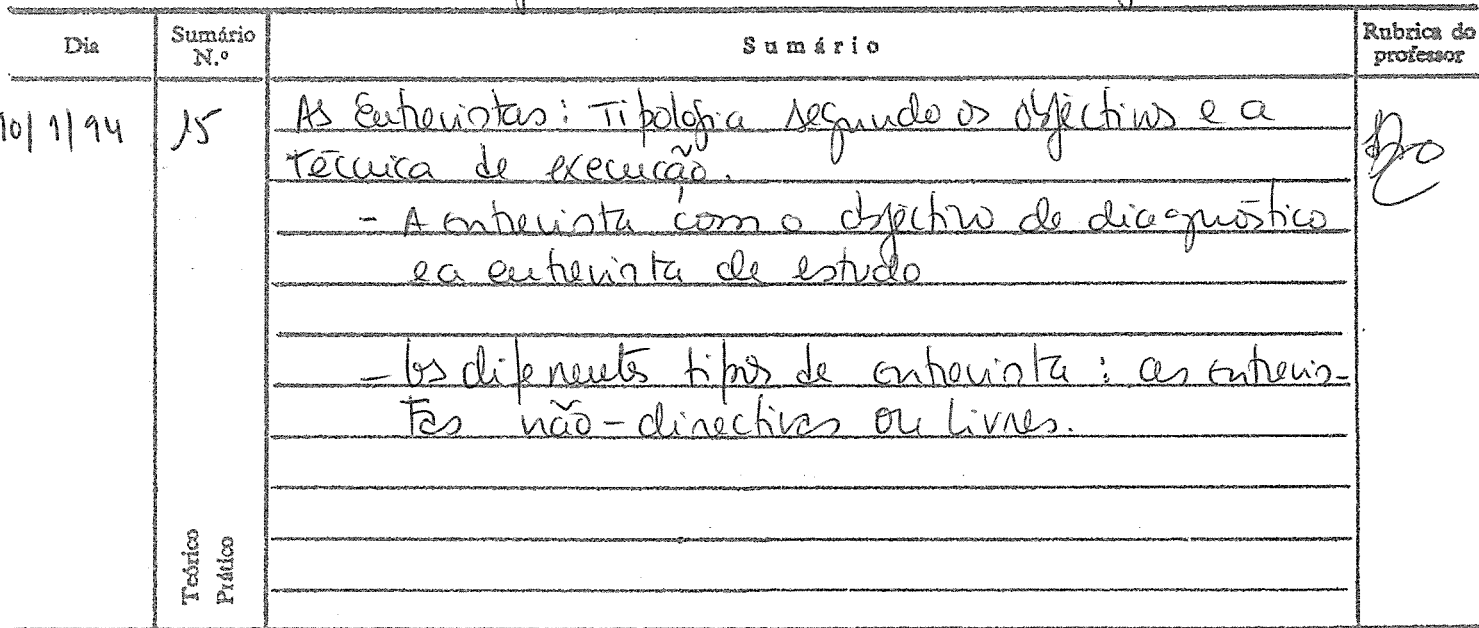 Dia
Sumário N.º
Sumário
Rubrica do professor
10/1/94
15
As Entrevistas: Tipologia segundo os objectivos e a
técnica de execução.
- A entrevista com o objectivo de diagnóstico
e a entrevista de estudo
- Os diferentes tipos de entrevista: as entrevis-
tas não-directivas ou livres.
Teórico
Prático